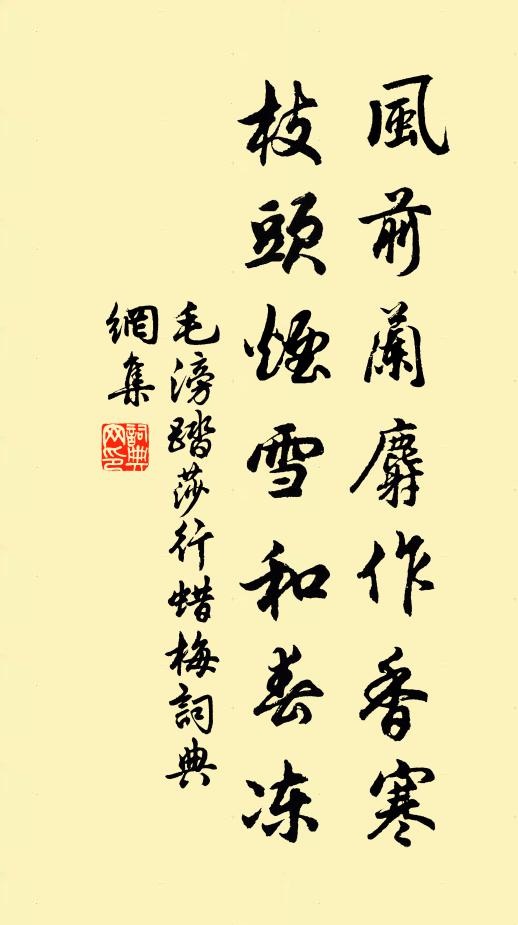 風前蘭麝作香寒
枝頭煙雪和春冻
毛滂踏莎行蜡梅詞典
網集
詞典網印